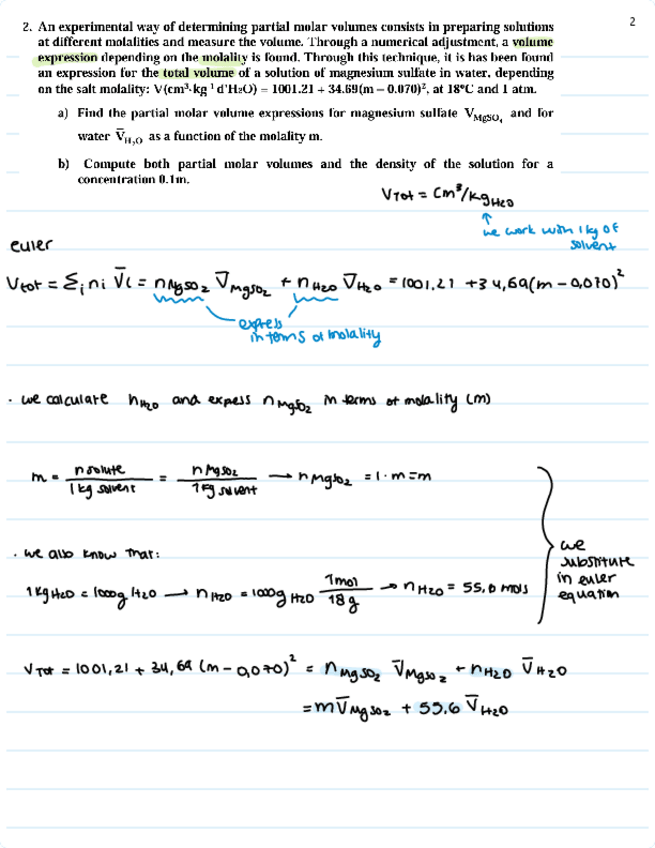 2
2. An experimental way of determining partial molar volumes consists in preparing solutions
at different molalities and measure the volume. Through a numerical adjustment, a volume
expression depending on the molality is found. Through this technique, it is has been found
an expression for the total volume of a solution of magnesium sulfate in water, depending
on the salt molality: V(cm³·kg⁻¹ d'H₂O) = 1001.21 + 34.69(m – 0.070)², at 18°C and 1 atm.
a) Find the partial molar volume expressions for magnesium sulfate V̅MgSO₄ and for
water V̅H₂O as a function of the molality m.
b) Compute both partial molar volumes and the density of the solution for a
concentration 0.1m.
VTot = cm³/kgH2O
↑
we work with 1 kg of
solvent
euler
Vtot = Σi ni V̅i = nMgSO2 V̅MgSO2 + nH2O V̅H2O = 1001,21 + 34,69(m - 0,070)²
express
in terms of molality
· we calculate nH2O and expess nMgSO2 in terms of molality (m)
m = n solute / 1 kg solvent = n MgSO2 / 1 kg solvent → nMgSO2 = 1·m = m
· we also know that:
1 kg H2O = 1000g H2O → nH2O = 1000g H2O 1mol / 18g → nH2O = 55,6 mols
we
substitute
in euler
equation
VTot = 1001,21 + 34,69 (m - 0,070)² = nMgSO2 V̅MgSO2 + nH2O V̅H2O
= mV̅MgSO2 + 55.6 V̅H2O